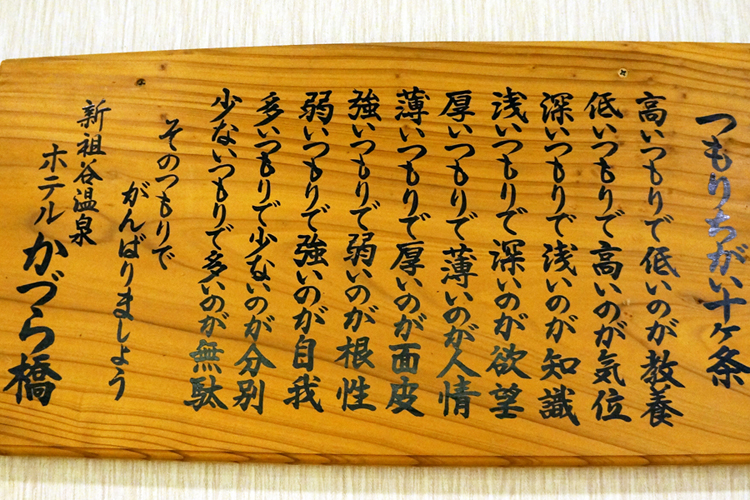 つもりちがい十ヶ条
高いつもりで低いのが教養
低いつもりで高いのが気位
深いつもりで浅いのが知識
浅いつもりで深いのが欲望
厚いつもりで薄いのが人情
薄いつもりで厚いのが面皮
強いつもりで弱いのが根性
弱いつもりで強いのが自我
多いつもりで少ないのが分別
少ないつもりで多いのが無駄
そのつもりで
がんばりましょう
新祖谷温泉
ホテルかづら橋